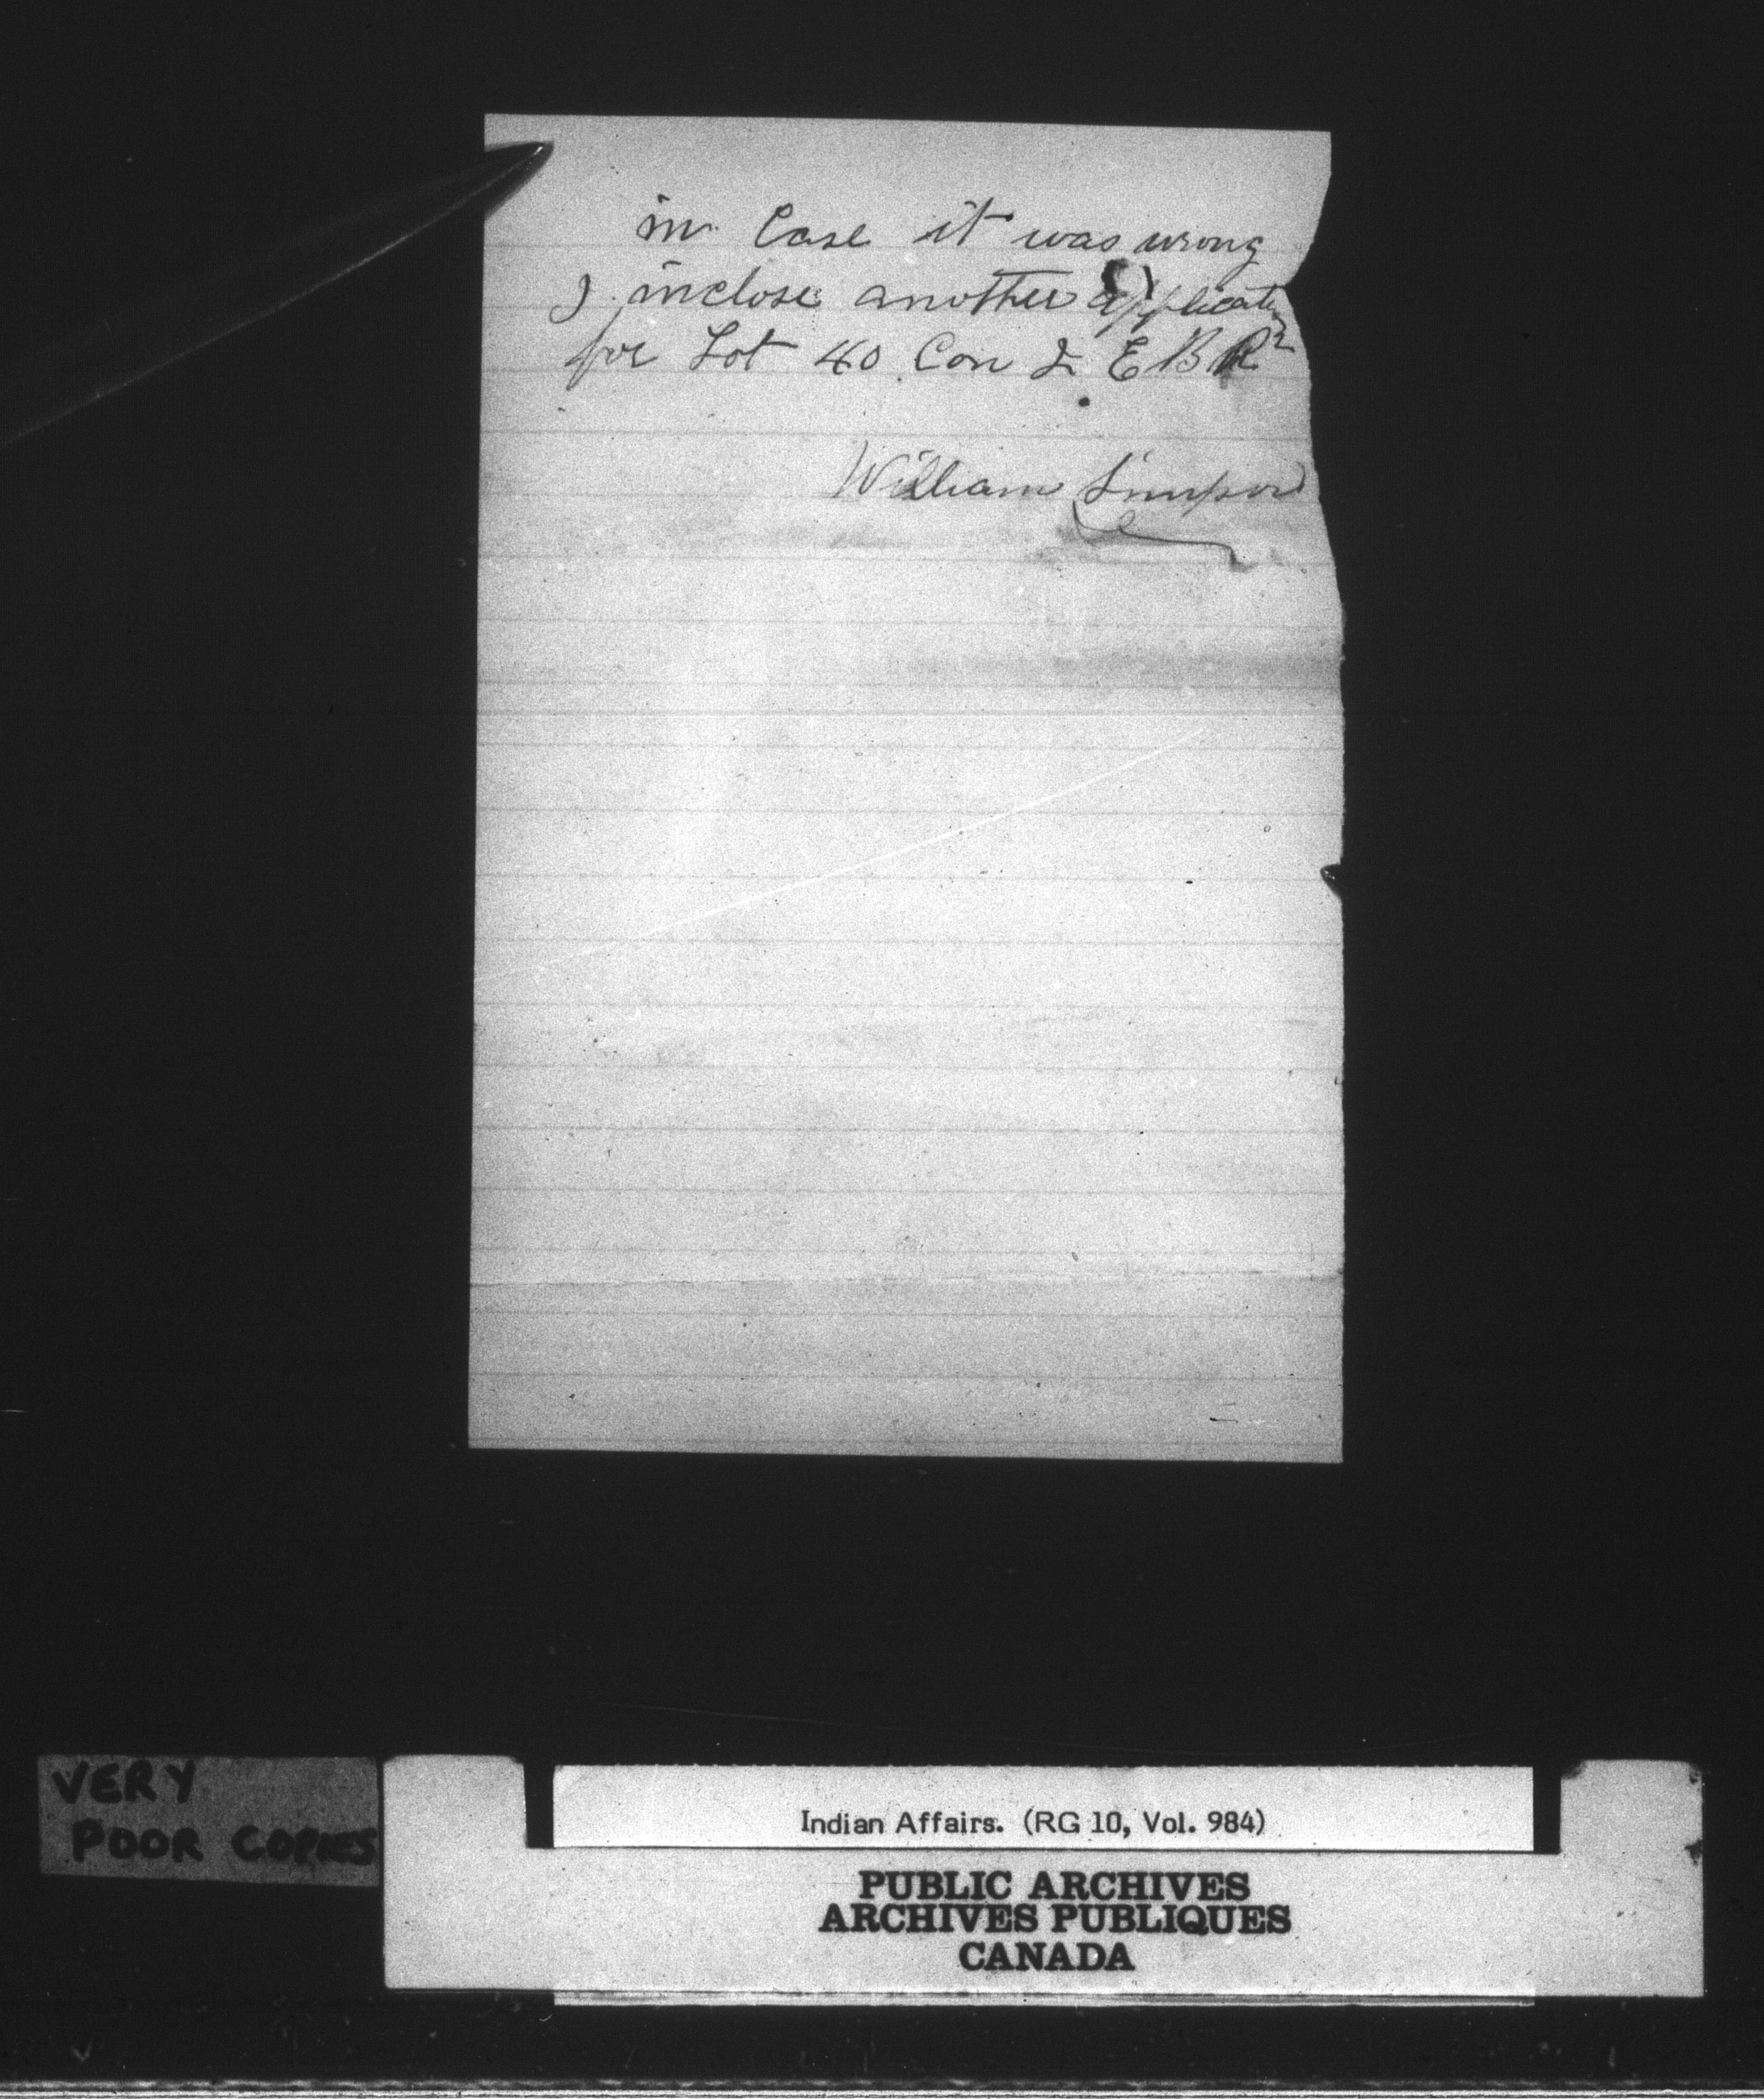 in Case it was wrong
I inclose another application
for Lot 40 Con 2 E B R
William Simpson
VERY
POOR COPIES
Indian Affairs. (RG 10, Vol. 984)
PUBLIC ARCHIVES
ARCHIVES PUBLIQUES
CANADA